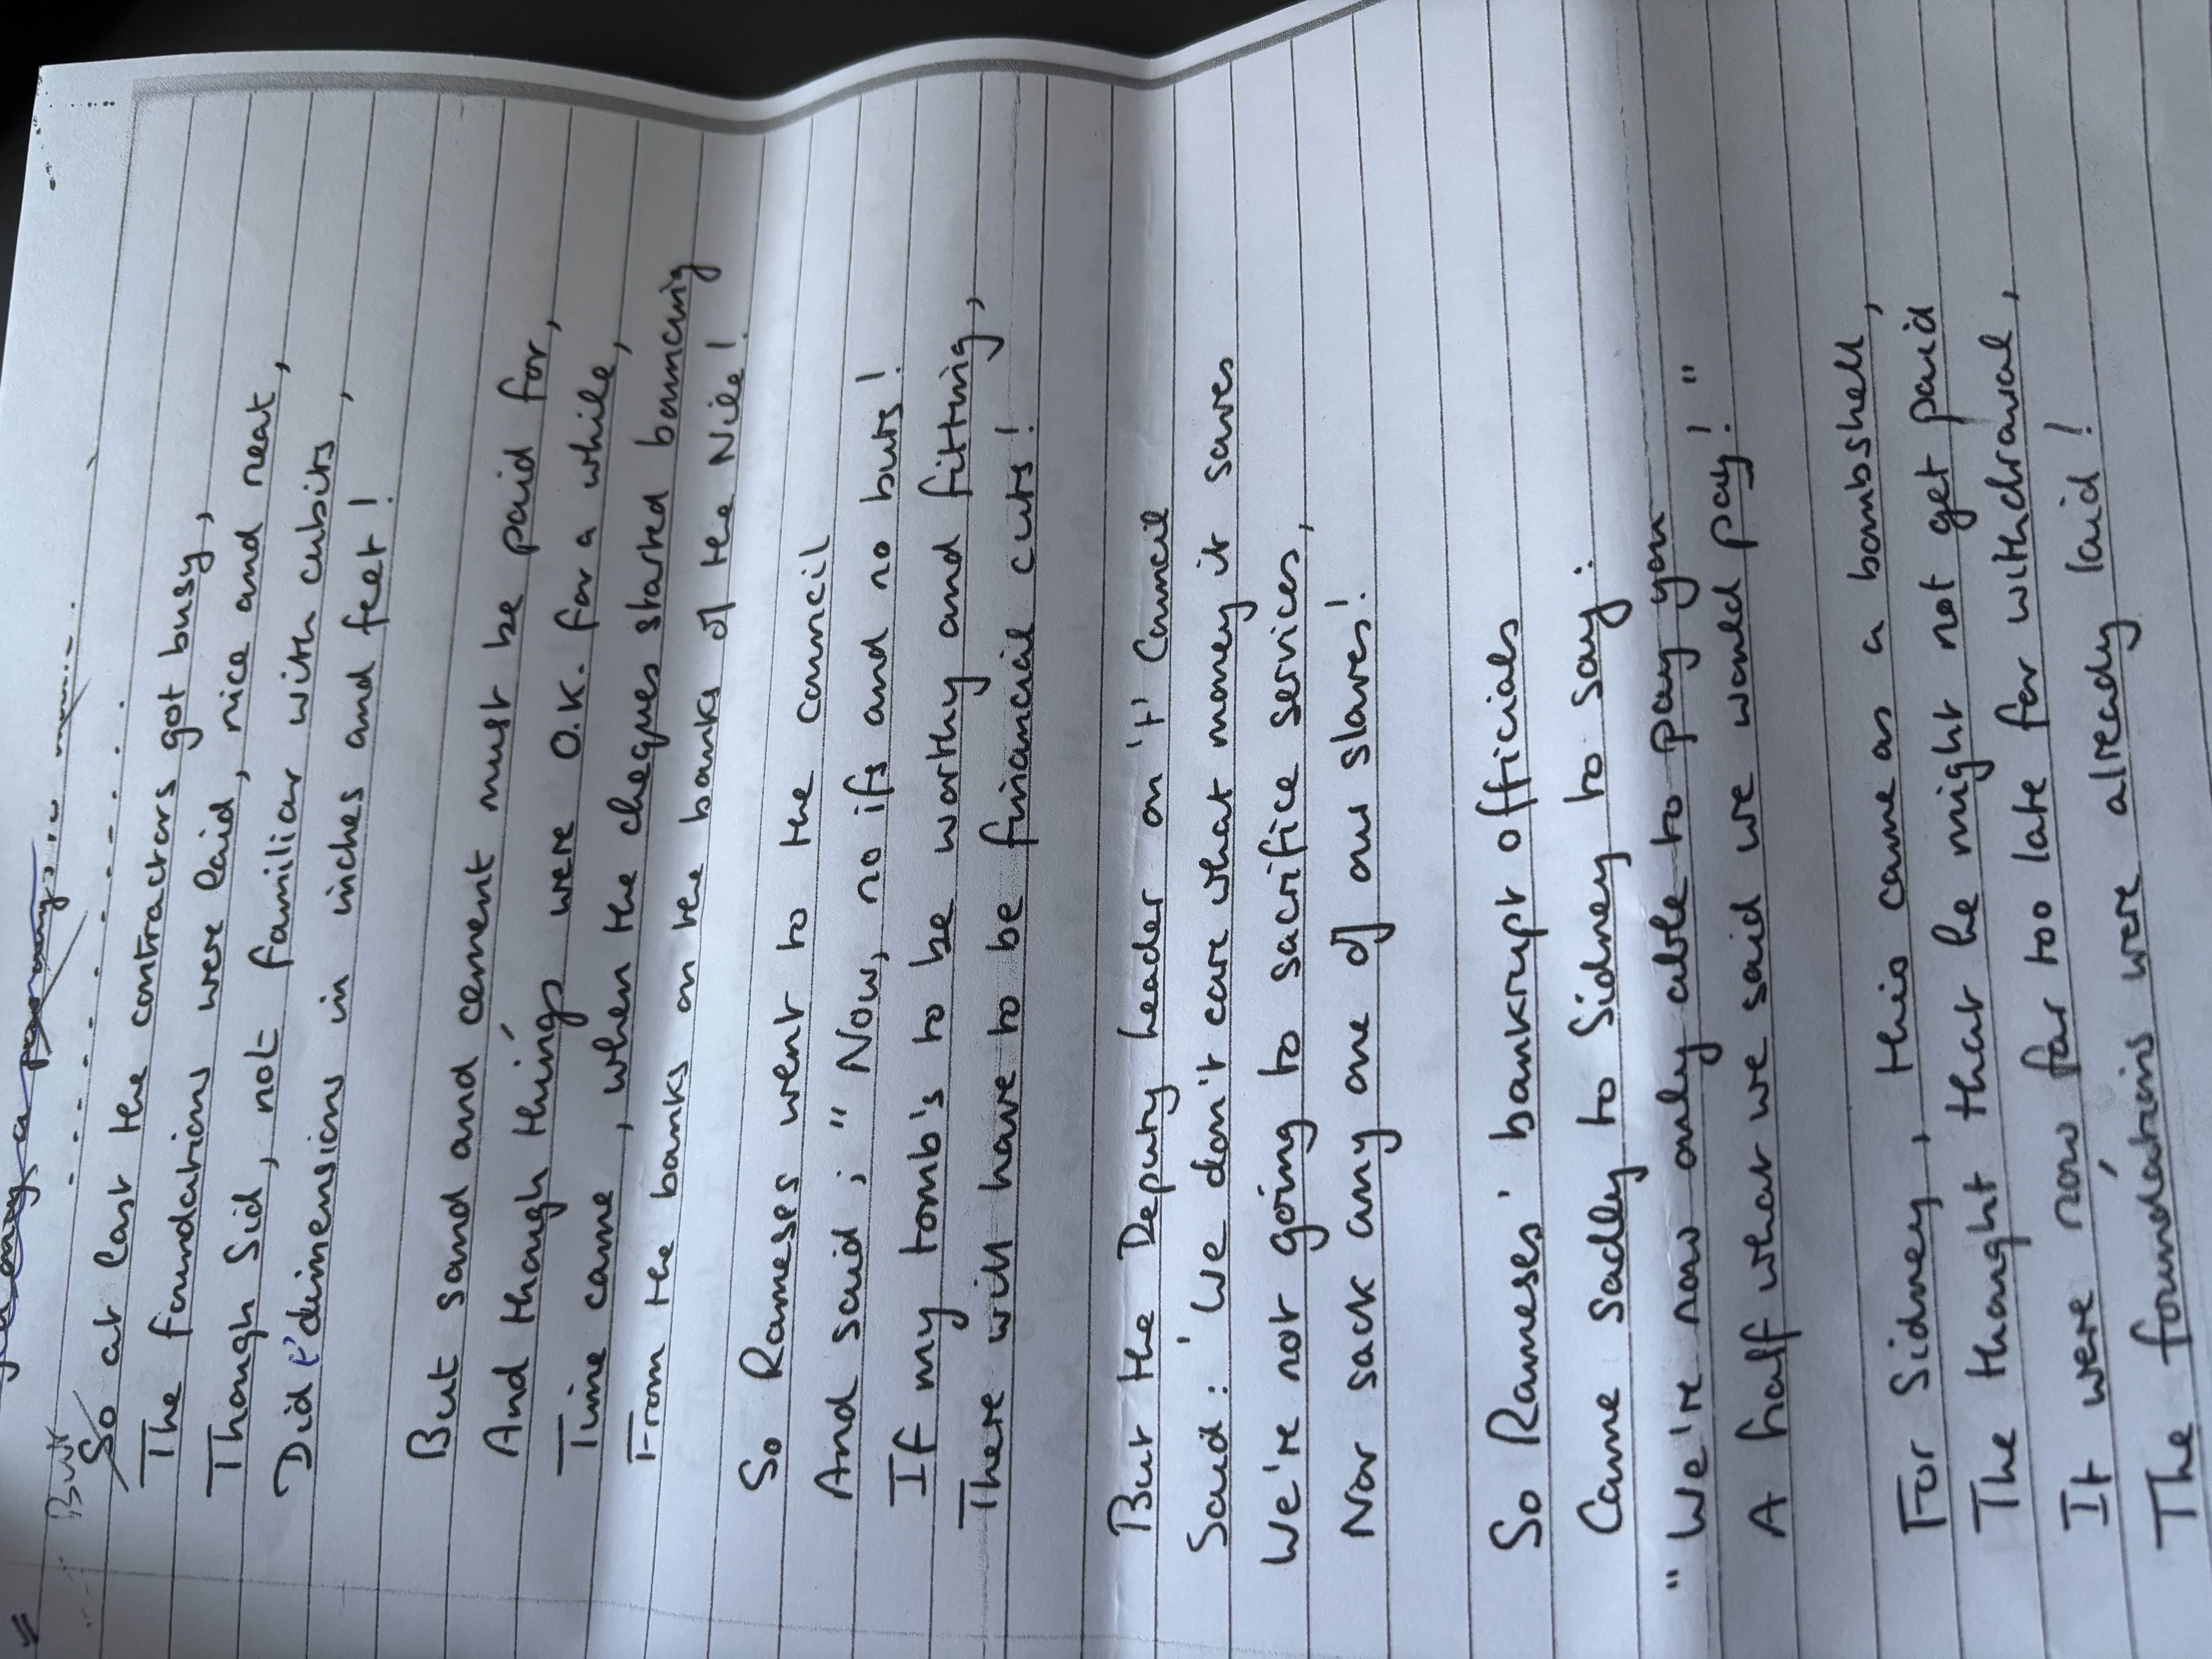 So at last the contractors got busy,
The foundations were laid, nice and neat,
Though Sid, not familiar with cubits,
Did t'dimensions in inches and feet!
But sand and cement must be paid for,
And though things were O.K. for a while,
Time came, when the cheques started bouncing
From the banks on the banks of the Nile!
So Rameses went to the council
And said; "Now, no ifs and no buts!
If my tomb's to be worthy and fitting,
There will have to be financial cuts!
But the Deputy Leader on 't' Council
Said: 'We don't care what money it saves
We're not going to sacrifice services,
Nor sack any one of our slaves!
So Rameses' bankrupt officials
Came sadly to Sidney to say:
"We're now only able to pay you
A half what we said we would pay!"
For Sidney, this came as a bombshell,
The thought that he might not get paid
It were now far too late for withdrawal,
The foundations were already laid!